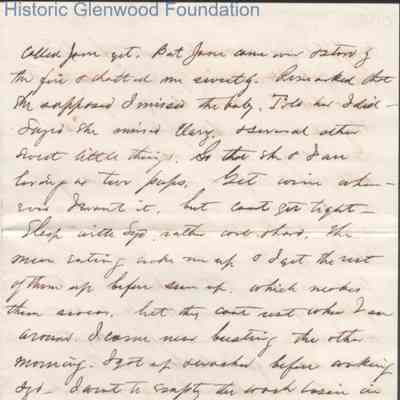 Historic Glenwood Foundation
called Jane yet. But Jane came over & stood by
the fire & chatted me sweetly. Remarked that
she supposed I missed the baby. Told her I did –
Says she missed Mary. & several other
sweet little things. So that she & I are
loving as two pups. Get wine when-
ever I want it, but cant get tight –
Sleep with Syd. rather cold & hard. The
men eating wake me up & I get the rest
of them up before sun up. which makes
them swear. but they cant rest when I am
around. I came near busting the other
morning. I got up & washed before waking
Syd – I went to empty the wash basin in